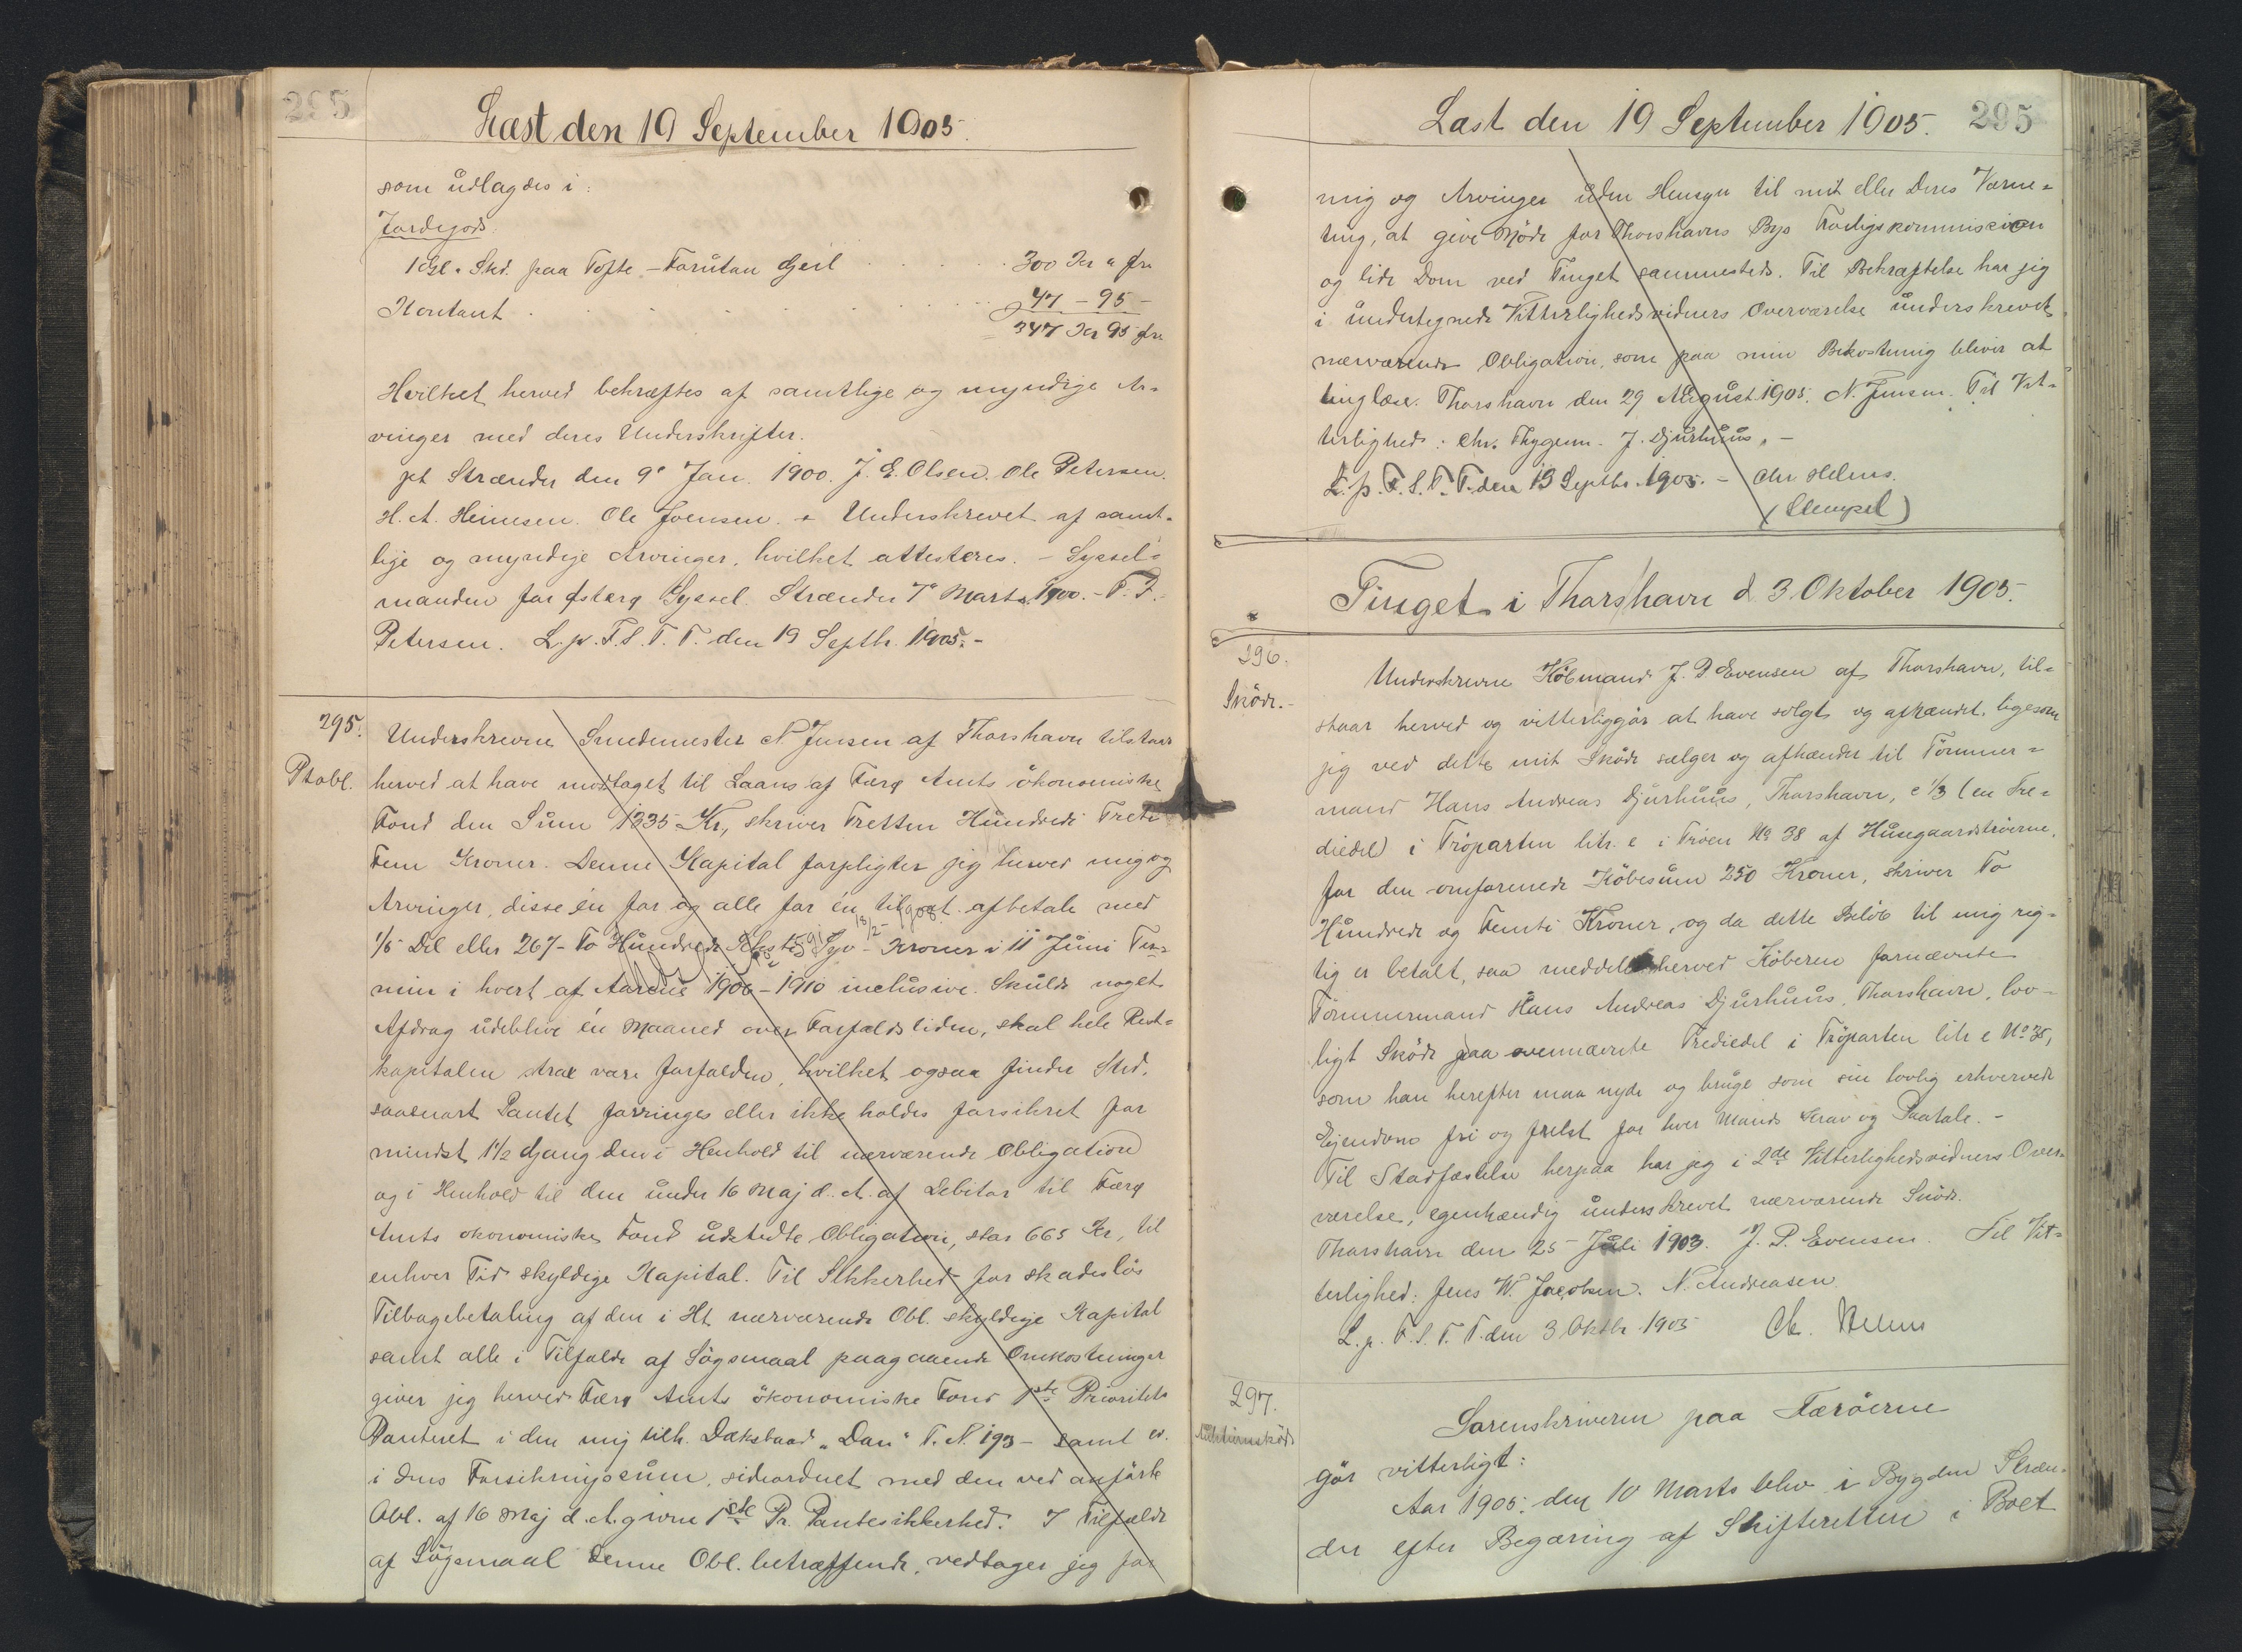 295
Læst den 19 September 1905.
som udlagdes i:
Jordegods:
1 Gl. Skd. paa Tofte - Forutan Gjeil . . . . . 300 Kr " Øre
Kontant . . . . . . . . 47 - 95 -
= 347 Kr 95 Øre
Hvilket herved bekræftes af samtlige og myndige Ar=
vinger med deres Underskrifter.
pt Strænder den 9' Jan. 1900. J. E. Olsen. Ole Petersen.
H. A. Heinesen. Ole Joensen. + Underskrevet af samt=
lige og myndige Arvinger, hvilket attesteres. - Syssel=
manden for Østerø Syssel. Strænder 7' Marts 1900. - P. F.
Petersen. L. p. F. S. T. T. den 19 Septb. 1905. -
295.
Ptobl.
Underskrevne Smedemester N. Jensen af Thorshavn tilstaar
herved at have modtaget til Laans af Færø Amts økonomiske
Fond den Sum 1335 Kr., skriver Tretten Hundrede Treti
Fem Kroner. Denne Kapital forpligter jeg herved mig og
Arvinger, disse én for og alle for én til at afbetale med
1/5 Del eller 267 - To Hundrede Seksti Syv - Kroner i 11 Juni Ter=
min i hvert af Aarene 1906 - 1910 inclusive. Skulde noget
Afdrag udeblive én Maaned over Forfaldstiden, skal hele Rest=
kapitalen strax være forfalden, hvilket ogsaa finder Sted,
saasnart Pantet forringes eller ikke holdes forsikret for
mindst 1 1/2 Gang den i Henhold til nærværende Obligation
og i Henhold til den under 16 Maj d. A. af Debitor til Færø
Amts økonomiske Fond udstedte Obligation, stor 665 Kr, til
enhver Tid skyldige Kapital. Til Sikkerhed for skadesløs
Tilbagebetaling af den i Ht. nærværende Obl. skyldige Kapital
samt alle i Tilfælde af Søgsmaal paagaaende Omkostninger
giver jeg herved Færø Amts økonomiske Fond 1ste Prioritets
Panteret i den mig tilh. Dæksbaad "Dan" T. N. 193 - samt ev.
i dens Forsikringssum, sideordnet med den ved anførte
Obl. af 16 Maj d. A. givne 1ste Pr. Pantesikkerhed. I Tilfælde
af Søgsmaal denne Obl. betræffende, vedtager jeg for
Læst den 19 September 1905. 295
mig og Arvinger uden Hensyn til mit eller deres Værne=
ting, at give Møde for Thorshavns Bys Forligskommission
og lide Dom ved Tinget sammesteds. Til Bekræftelse har jeg
i undertegnede Vitterlighedsvidners Overværelse underskrevet
nærværende Obligation, som paa min Bekostning bliver at
tinglæse. Thorshavn den 29 August 1905. N. Jensen. Til Vit=
terlighed: Chr. Thygesen. J. Djurhuus. -
L. p. F. S. T. T. den 19 Septbr. 1905. - Chr Helms.
(Stempel)
Tinget i Thorshavn d 3 Oktober 1905.
296.
Skøde. -
Underskrevne Købmand J. P. Evensen af Thorshavn, til=
staar herved og vitterliggør at have solgt og afhændet, ligesom
jeg ved dette mit Skøde sælger og afhænder til Tømmer=
mand Hans Andreas Djurhuus, Thorshavn, c 1/3 (en Tre=
diedel) i Trøparten litr. e i Trøen No 38 af Husegaardstrøerne,
for den omforenede Købesum 250 Kroner, skriver To
Hundrede og Femti Kroner, og da dette Beløb til mig rig=
tig er betalt, saa meddeles herved Køberen fornævnte
Tømmermand Hans Andreas Djurhuus, Thorshavn, lov=
ligt Skøde paa ovennævnte Trediedel i Trøparten litr e No 38,
som han herefter maa nyde og bruge som sin lovlig erhvervede
Ejendom fri og frelst for hver Mands Krav og Paatale. -
Til Stadfæstelse herpaa har jeg i 2de Vitterlighedsvidners Over=
værelse, egenhændig underskrevet nærværende Skøde.
Thorshavn den 25 Juli 1903. J. P. Evensen. Til Vit=
terlighed: Jens W. Jacobsen. N. Andreasen.
L. p. F. S. T. T. den 3 Oktbr. 1905 Chr. Helms
297.
Auktionsskøde
Sorenskriveren paa Færøerne
gør vitterligt:
Aar 1905: den 10 Marts blev i Bygden Stræn=
der efter Begæring af Skifteretten i Boet